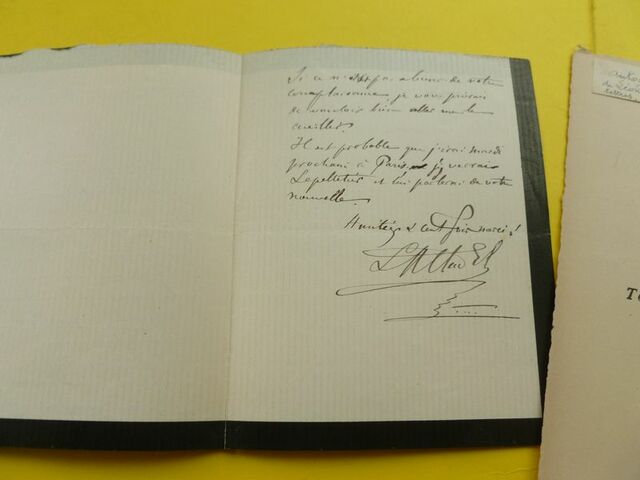 Si ce n'est pas abuser de votre
complaisance je vous prierai
de vouloir bien aller me le
cueillir.
Il est probable que j'irai mardi
prochain à Paris, j'y verrai
Lepelletier et lui parlerai de votre
nouvelle.
Amitiés & cent fois merci!
autog
de Léon
lettres
T